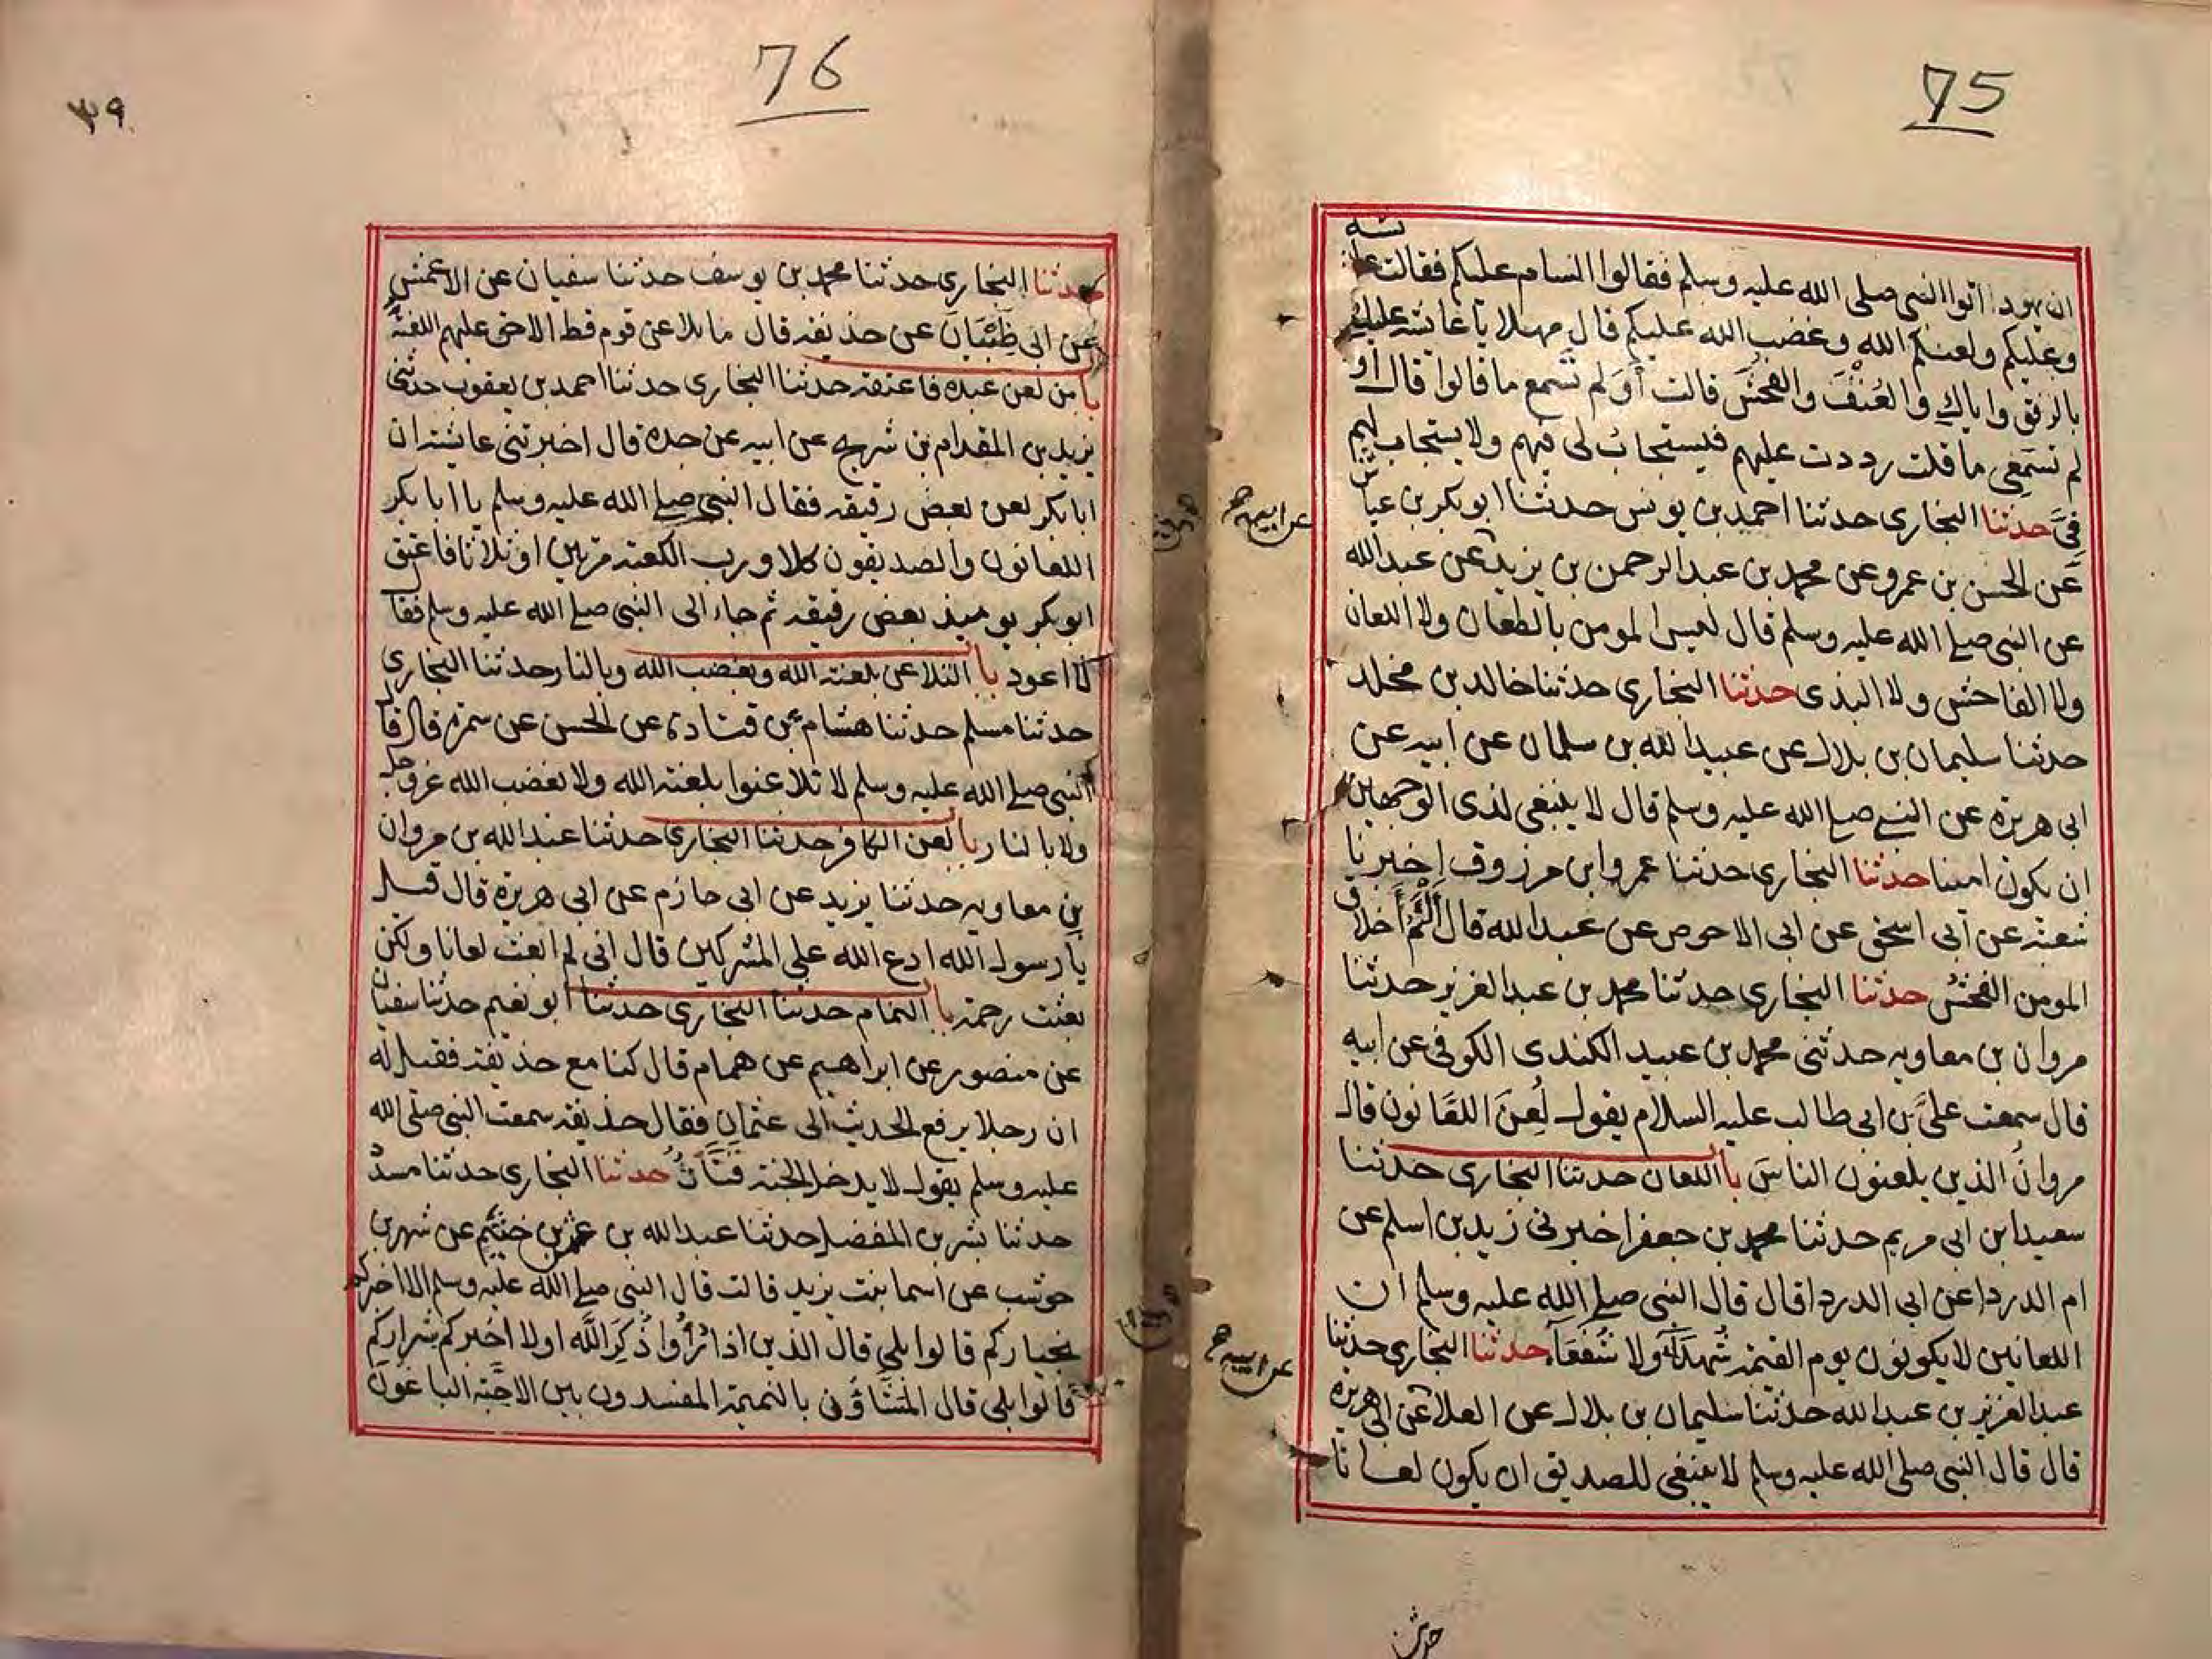 75
ان يهودا اتوا النبى صلى الله عليه وسلم فقالوا السام عليكم فقالت عائشه
وعليكم ولعنكم الله وغضب الله عليكم قال مهلا يا عائشه عليك
بالرفق واياك والعُنْفَ والفحشَ قالت أَوَلم تَسْمع ما قالوا قال او
لم تسمعى ما قلت رددت عليهم فيستجابُ لى فيهم ولا يستجاب لهم
فِىَّ حدثنا البخارى حدثنا احمد بن يونس حدثنا ابو بكر بن عياش
عن الحسن بن عمرو عن محمد بن عبد الرحمن بن يزيد عن عبد الله
عن النبى صلے الله عليه وسلم قال ليس المومن بالطعان ولا اللعان
ولا الفاحش ولا البذى حدثنا البخارى حدثنا خالد بن مخلد
حدثنا سليمان بن بلال عن عبيد الله بن سلمان عن ابيه عن
ابى هريرة عن النبے صلے الله عليه وسلم قال لا ينبغى لذى الوجهين
ان يكون امينا حدثنا البخارى حدثنا عمرو ابن مرزوق اخبرنا
شعبه عن ابى اسحق عن ابى الاحوص عن عبد الله قال أَلْأَمُ أَخلاق
المومن الفحشُ حدثنا البخارى حدثنا محمد بن عبد العزيز حدثنا
مروان بن معاويه حدثنى محمد بن عبيد الكندى الكوفى عن ابيه
قال سمعت علىَّ بن ابى طالب عليه السلام يقول لُعِنَ اللعَّانون قال
مروانُ الذين يلعنون الناسَ با اللعان حدثنا البخارى حدثنا
سعيد ابن ابى مريم حدثنا محمد بن جعفر اخبرنى زيد بن اسلم عن
ام الدردا عن ابى الدردا قال قال النبى صلے الله عليه وسلم ان
اللعانين لا يكونون يوم القيمه شُهدَآءَ ولا شُفعَآءَ حدثنا البخارى حدثنا
عبد العزيز بن عبد الله حدثنا سليمان بن بلال عن العلا عن ابى هريرة
قال قال النبى صلى الله عليه وسلم لا ينبغى للصديق ان يكون لعانا
عن ابيه صح
عن ابيه صح
حدثنا
76
٣٩
حدثنا البخارى حدثنا محمد بن يوسف حدثنا سفيان عن الاعمش
عن ابى ظَبْيَانَ عن حذيفه قال ما تلاعن قوم قط الا حق عليهم اللعنةُ
با من لعن عبده فاعتقه حدثنا البخارى حدثنا احمد بن يعقوب حدثنى
يزيد بن المقدام بن شريح عن ابيه عن جده قال اخبرتنى عايشه ان
ابا بكر لعن بعض رقيقه فقال النبى صلے الله عليه وسلم يا ابا بكر
اللعانون والصديقون كلا ورب الكعبه مرتين او ثلاثا فاعتق
ابو بكر يوميذ بعض رقيقه ثم جاء الى النبى صلے الله عليه وسلم فقال
لا اعود با التلاعن بلعنه الله وبغضب الله وبالنار حدثنا البخارى
حدثنا مسلم حدثنا هشام عن قتادة عن الحسن عن سمره قال قال
النبى صلے الله عليه وسلم لا تلاعنوا بلعنه الله ولا بغضب الله عز وجل
ولا بالنار با لعن الكافر حدثنا البخارى حدثنا عبد الله بن مروان
بن معاويه حدثنا يزيد عن ابى حازم عن ابى هريرة قال قيل
يا رسول الله ادع الله على المشركين قال انى لم ابعث لعانا ولكن
بعثت رحمة با النمام حدثنا البخارى حدثنا ابو نعيم حدثنا سفيان
عن منصور عن ابراهيم عن همام قال كنا مع حذيفه فقيل له
ان رجلا يرفع الحديث الى عثمان فقال حذيفه سمعت النبى صلى الله
عليه وسلم يقول لا يدخل الجنه قَتَّاتٌ حدثنا البخارى حدثنا مسدد
حدثنا بشر بن المفضل حدثنا عبد الله بن عثمن بن خثيم عن شهر بن
حوشب عن اسما بنت يزيد قالت قال النبى صلے الله عليه وسلم الا اخبركم
بخياركم قالوا بلى قال الذين اذا رُأوا ذُكِرَ اللَّه اولا اخبركم بشراركم
قالوا بلى قال المَشَّاؤن بالنميمة المفسدون بين الاحبَّه الباغون